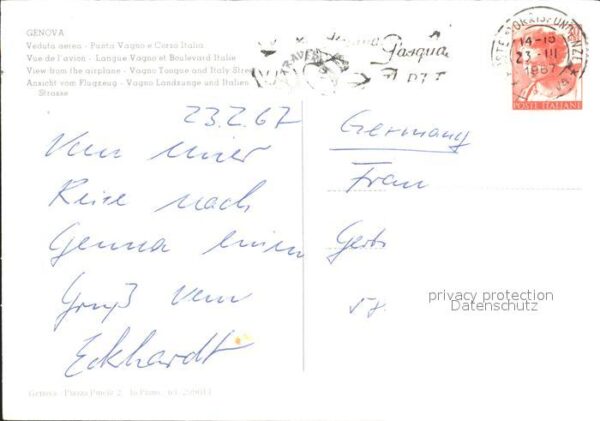 GENOVA
Veduta aerea - Punta Vagno e Corso Italia
Vue de l'avion - Langue Vagno et Boulevard Italie
View from the airplane - Vagno Tongue and Italy Street
Ansicht vom Flugzeug - Vagno Landzunge und Italien
Strasse
Pasqua
14-15
23 - III
1967
POSTE ITALIANE
23.2.67
Von unser
Reise nach
Genua einen
Gruß von
Eckhardt
Germany
Frau
58
privacy protection
Datenschutz